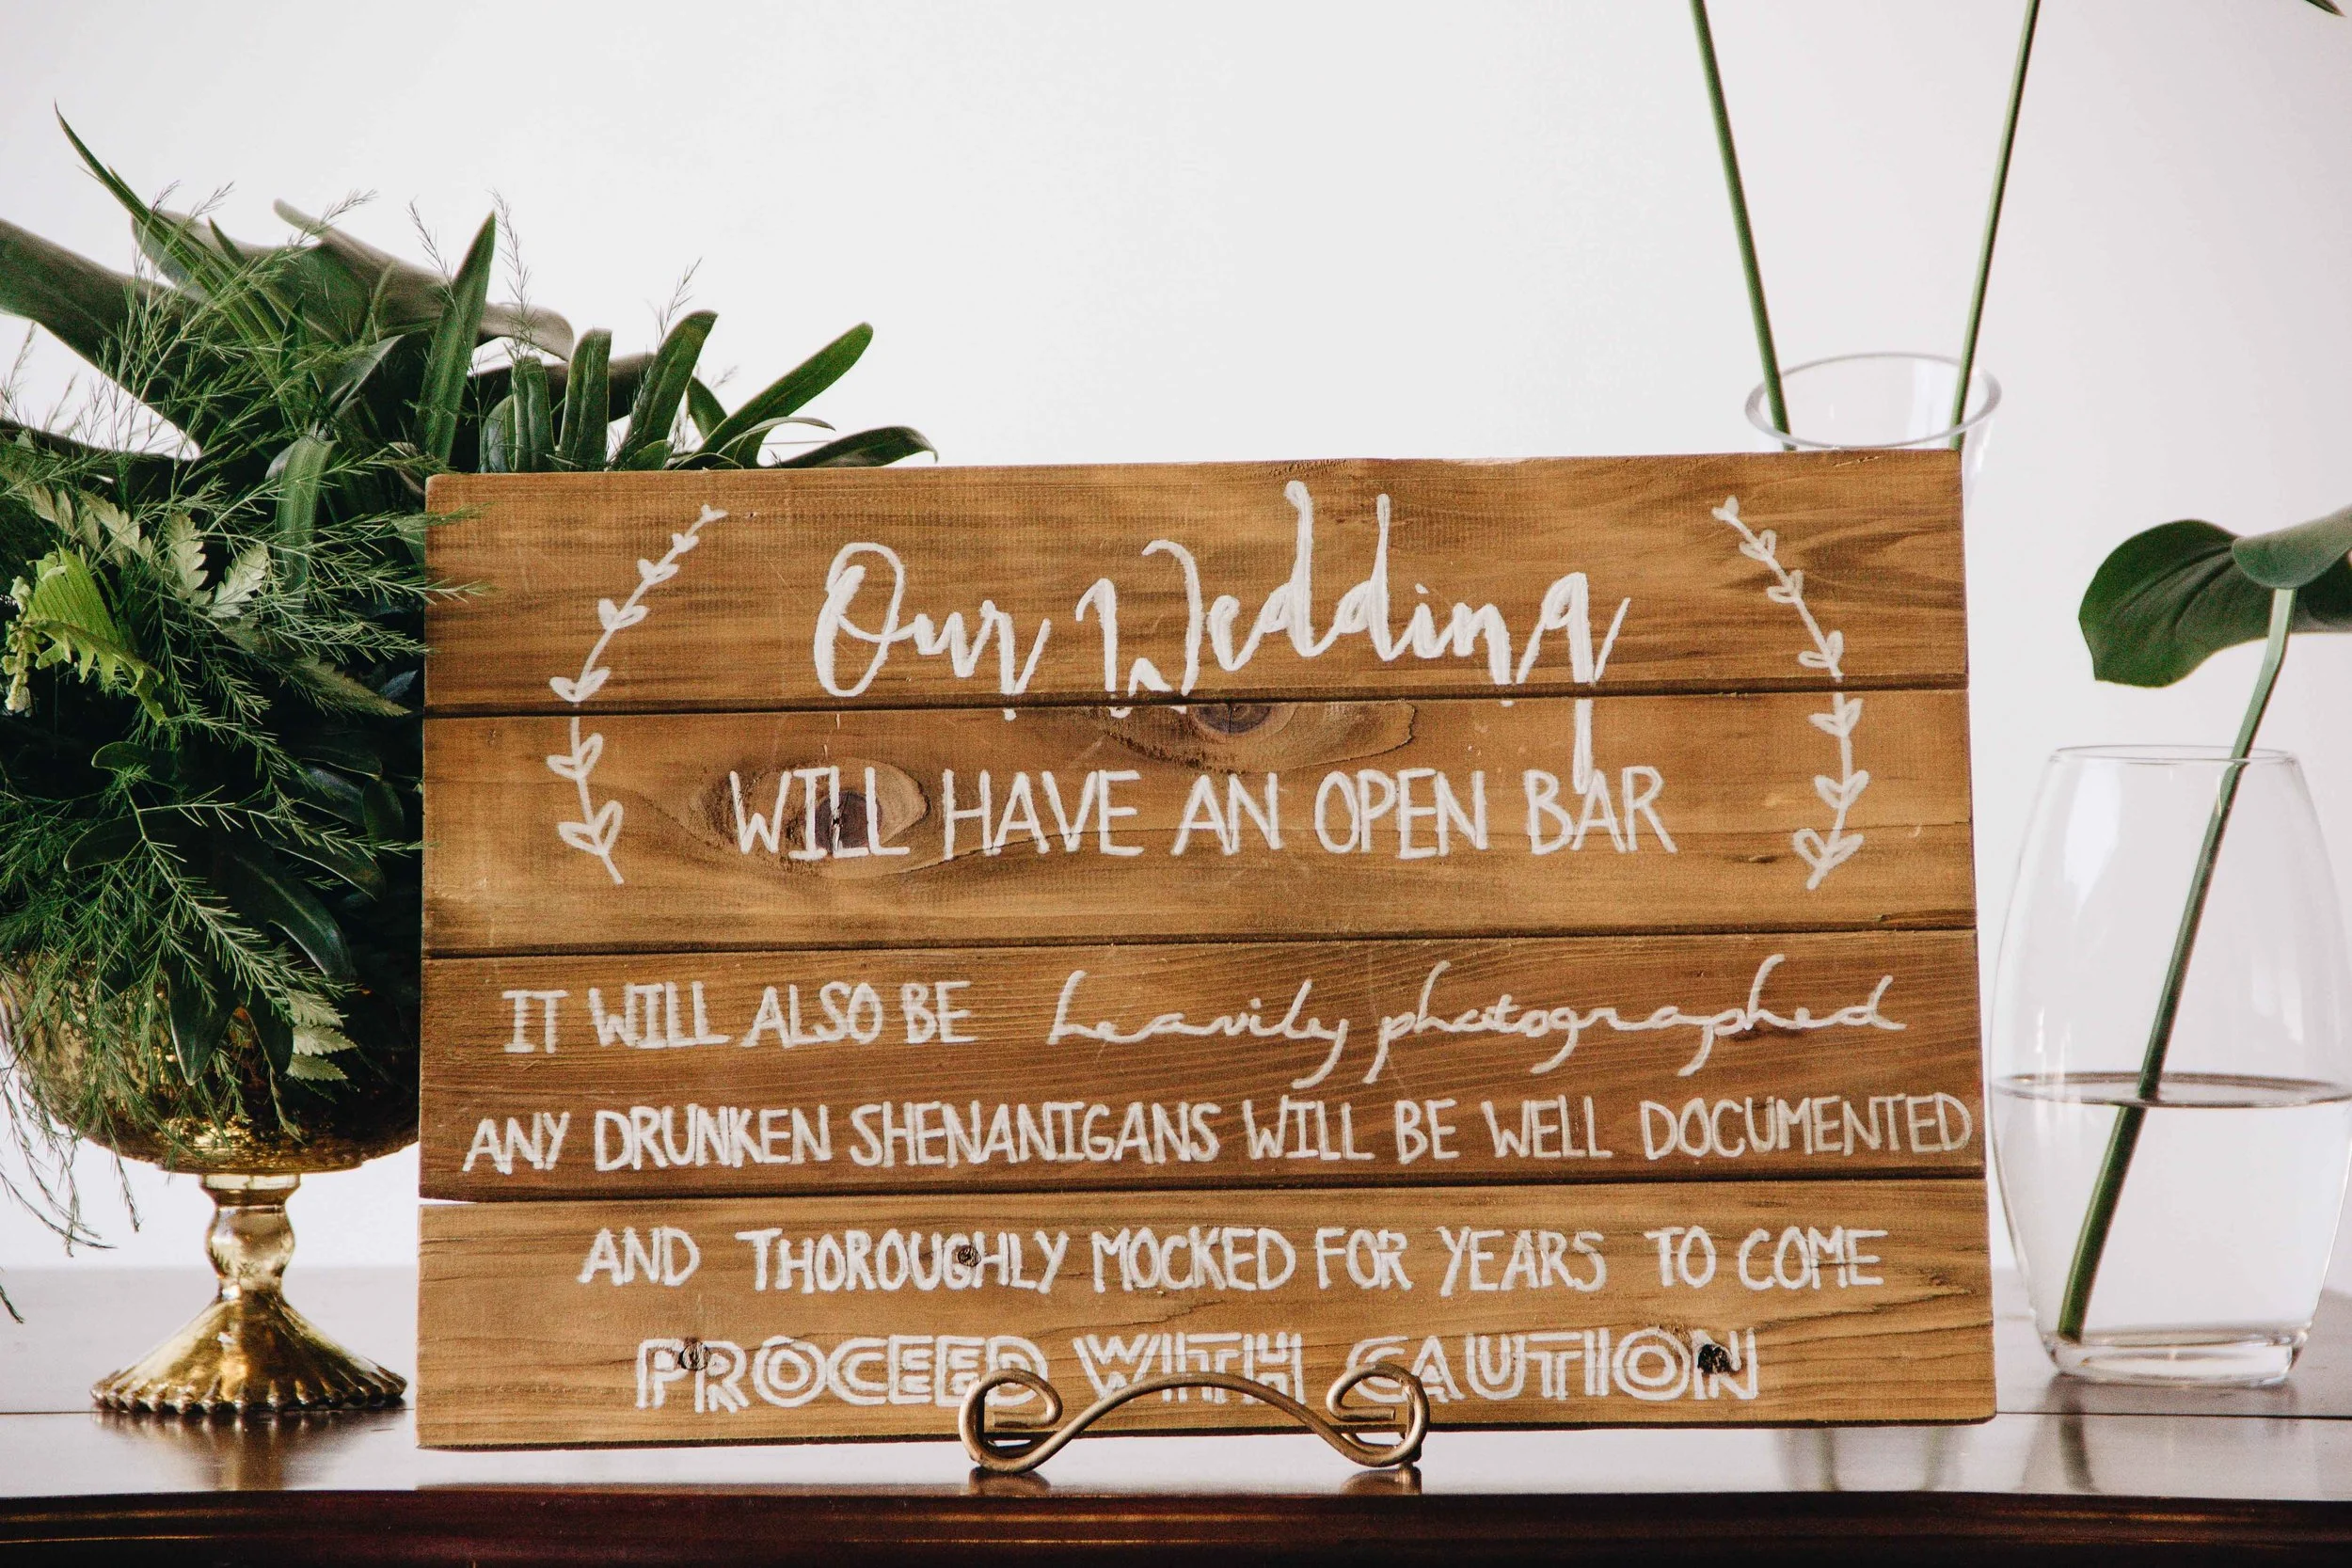 Our Wedding
WILL HAVE AN OPEN BAR
IT WILL ALSO BE heavily photographed
ANY DRUNKEN SHENANIGANS WILL BE WELL DOCUMENTED
AND THOROUGHLY MOCKED FOR YEARS TO COME
PROCEED WITH CAUTION